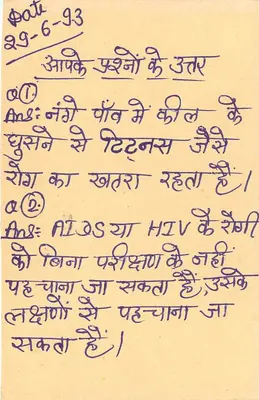 Date
29-6-93
आपके प्रश्नों के उत्तर
Q①.
Ans:- नंगे पाँव में कील के
घुसने से टिटनस जैसे
रोग का खतरा रहता हैं।
Q②
Ans:- AIDS या HIV के रोगी
को बिना परीक्षण के नहीं
पहचाना जा सकता हैं, उसके
लक्षणों से पहचाना जा
सकता हैं।